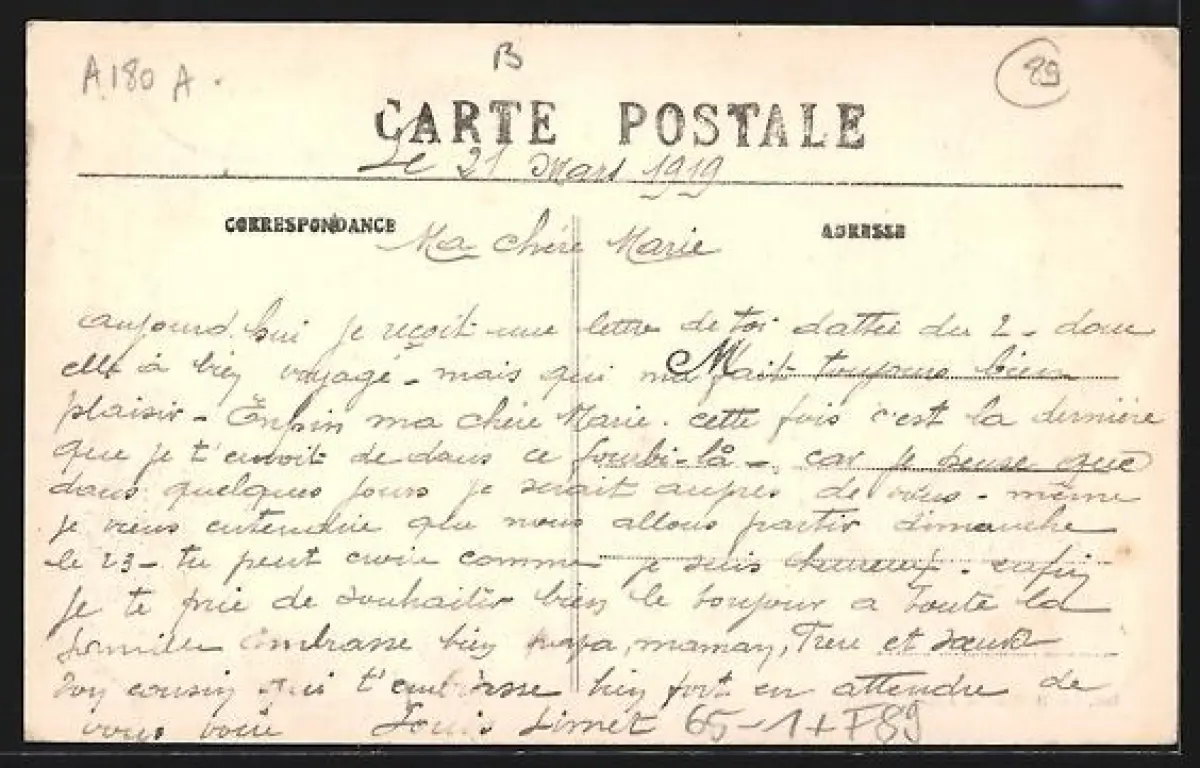 A180 A.
B
89
CARTE POSTALE
Le 21 Mars 1919
CORRESPONDANCE
ADRESSE
Ma chère Marie
aujourd'hui je reçoit une lettre de toi dattée du 2 - donc
elle à bien voyagé - mais qui ma fait toujours bien
M
plaisir - Enfin ma chère Marie. cette fois c'est la dernière
que je t'envoit de dans ce fourbi-là - car je pense que
dans quelques jours je serait auprès de vous - même
je viens entendre que nous allons partir dimanche
le 23 - tu peut croire comme je suis heureux. enfin
Je te prie de souhaiter bien le bonjour a toute la
famille embrasse bien papa, maman, frere et sœur
Ton cousin qui t'embrasse bien fort en attendre de
vous voir Louis 65-1+F89